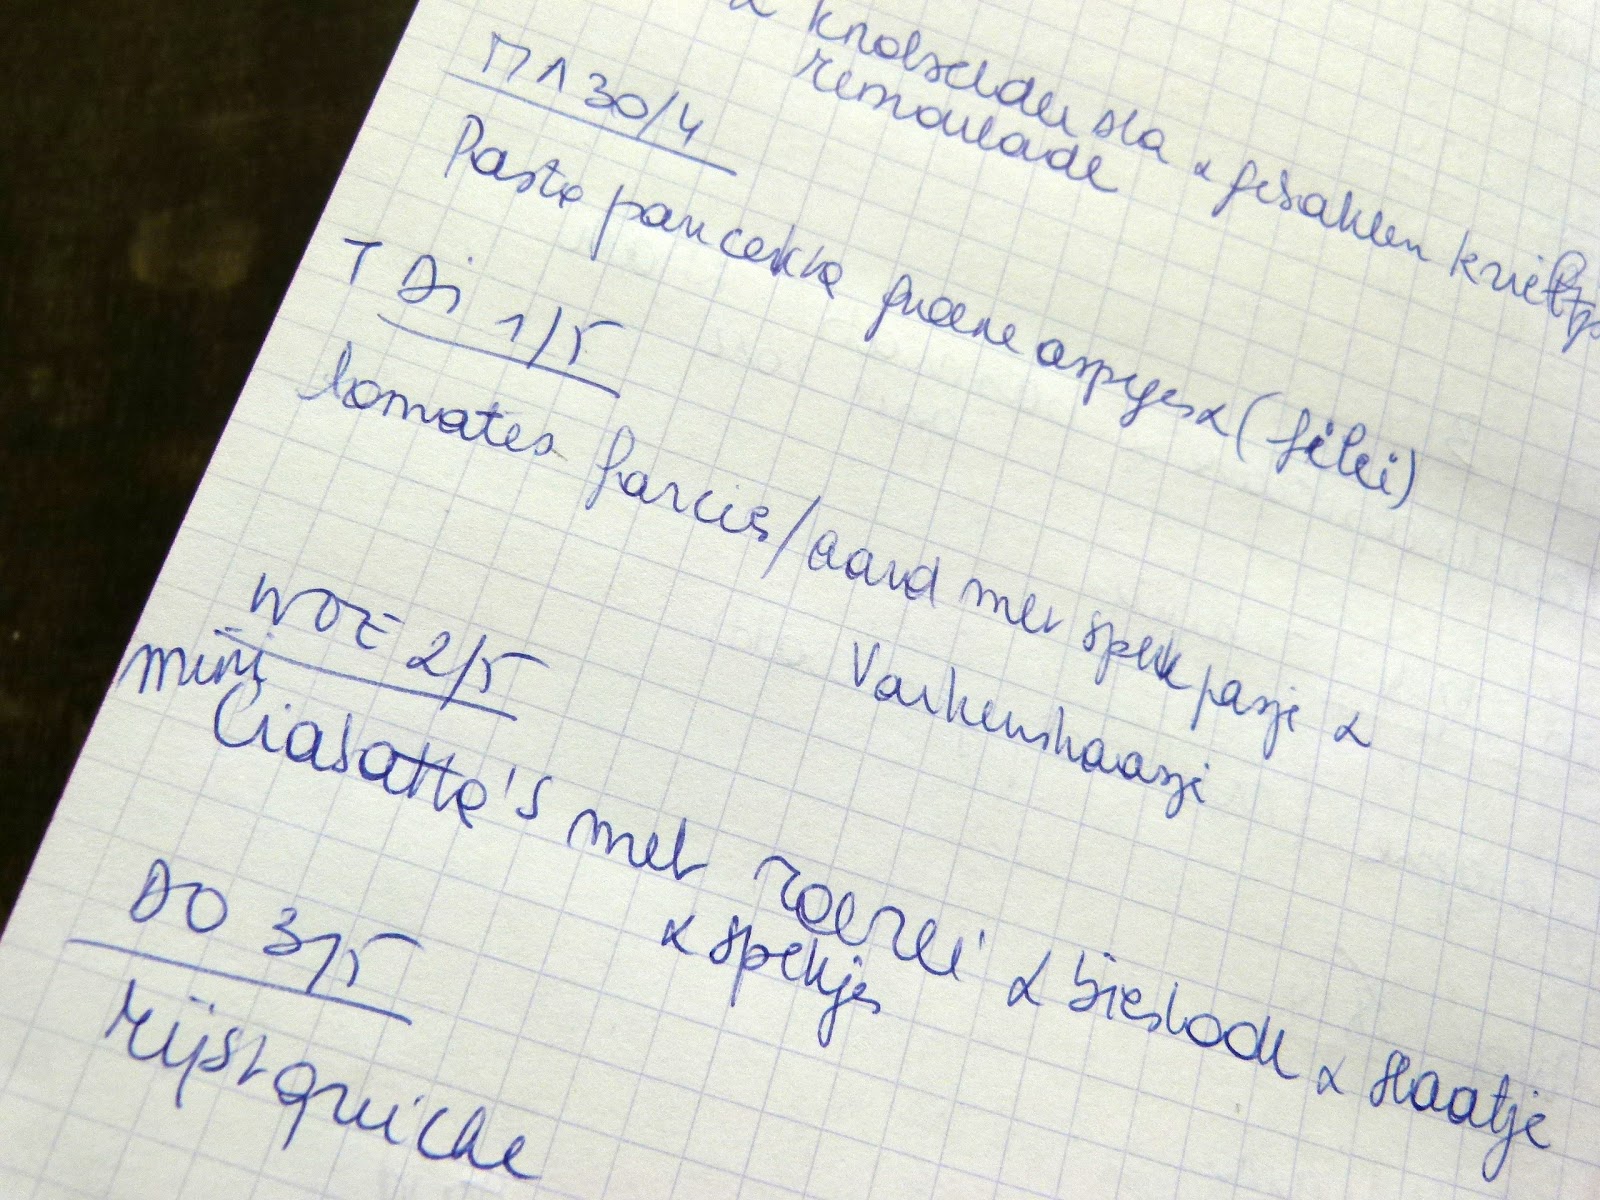 & knolselder sla & gebakken krieltjes
remoulade
MA 30/4
Pasta pancetta groene asperges & (filei)
T Di 1/5
tomates farcies/aard met spek pasje &
Varkenshaasje
WOE 2/5
mini
Ciabatta's met roerei & bieslook & slaatje
& spekjes
DO 3/5
rijstquiche